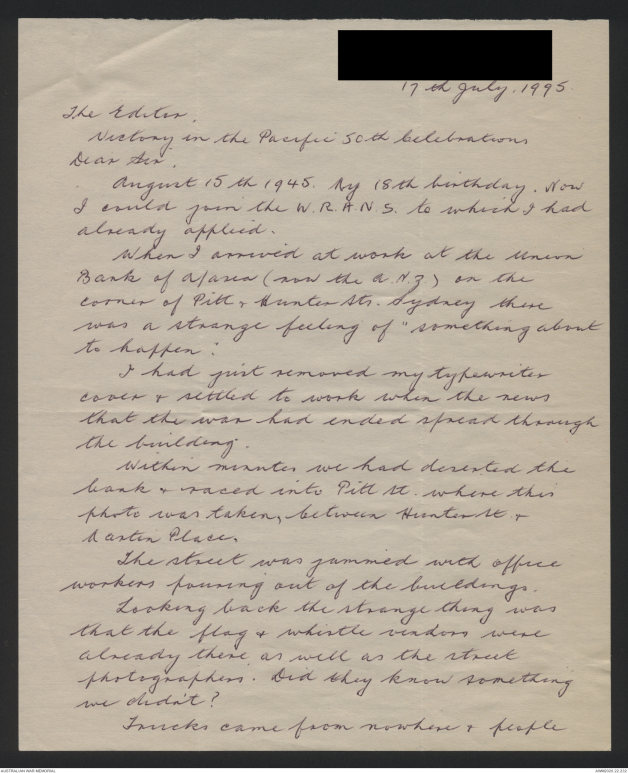 17th July. 1995.
The Editor.
Victory in the Pacific 50th Celebrations
Dear Sir.
August 15th 1945. My 18th birthday. Now
I could join the W.R.A.N.S. to which I had
already applied.
When I arrived at work at the Union
Bank of A/asia (now the A.N.Z) on the
corner of Pitt & Hunter Sts. Sydney there
was a strange feeling of "something about
to happen".
I had just removed my typewriter
cover & settled to work when the news
that the war had ended spread through
the building.
Within minutes we had deserted the
bank & raced into Pitt St. where this
photo was taken, between Hunter St &
Martin Place.
The street was jammed with office
workers pouring out of the buildings.
Looking back the strange thing was
that the flag & whistle vendors were
already there as well as the street
photographers. Did they know something
we didn't?
Trucks came from nowhere & people
AUSTRALIAN WAR MEMORIAL